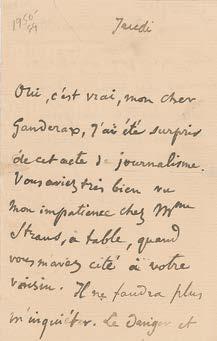 1950
89
Jeudi
Oui, c'est vrai, mon cher
Ganderax, j'ai été surpris
de cet acte de journalisme.
Vous aviez très bien vu
mon impatience chez Mme
Straus, à table, quand
vous m'avez cité à votre
voisin. Il ne faudra plus
m'inquiéter. Le danger et